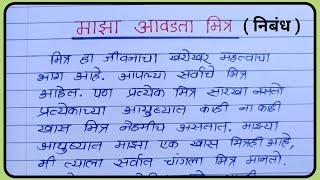 माझा आवडता मित्र ( निबंध )
मित्र हा जीवनाचा खरोखर महत्वाचा
भाग आहे. आपल्या सर्वांचे मित्र
आहेत. पण प्रत्येक मित्र सारखा नसतो
प्रत्येकाच्या आयुष्यात काही ना काही
खास मित्र नेहमीच असतात. माझ्या
आयुष्यात माझा एक खास मित्रही आहे,
मी त्याला सर्वात चांगला मित्र मानतो.